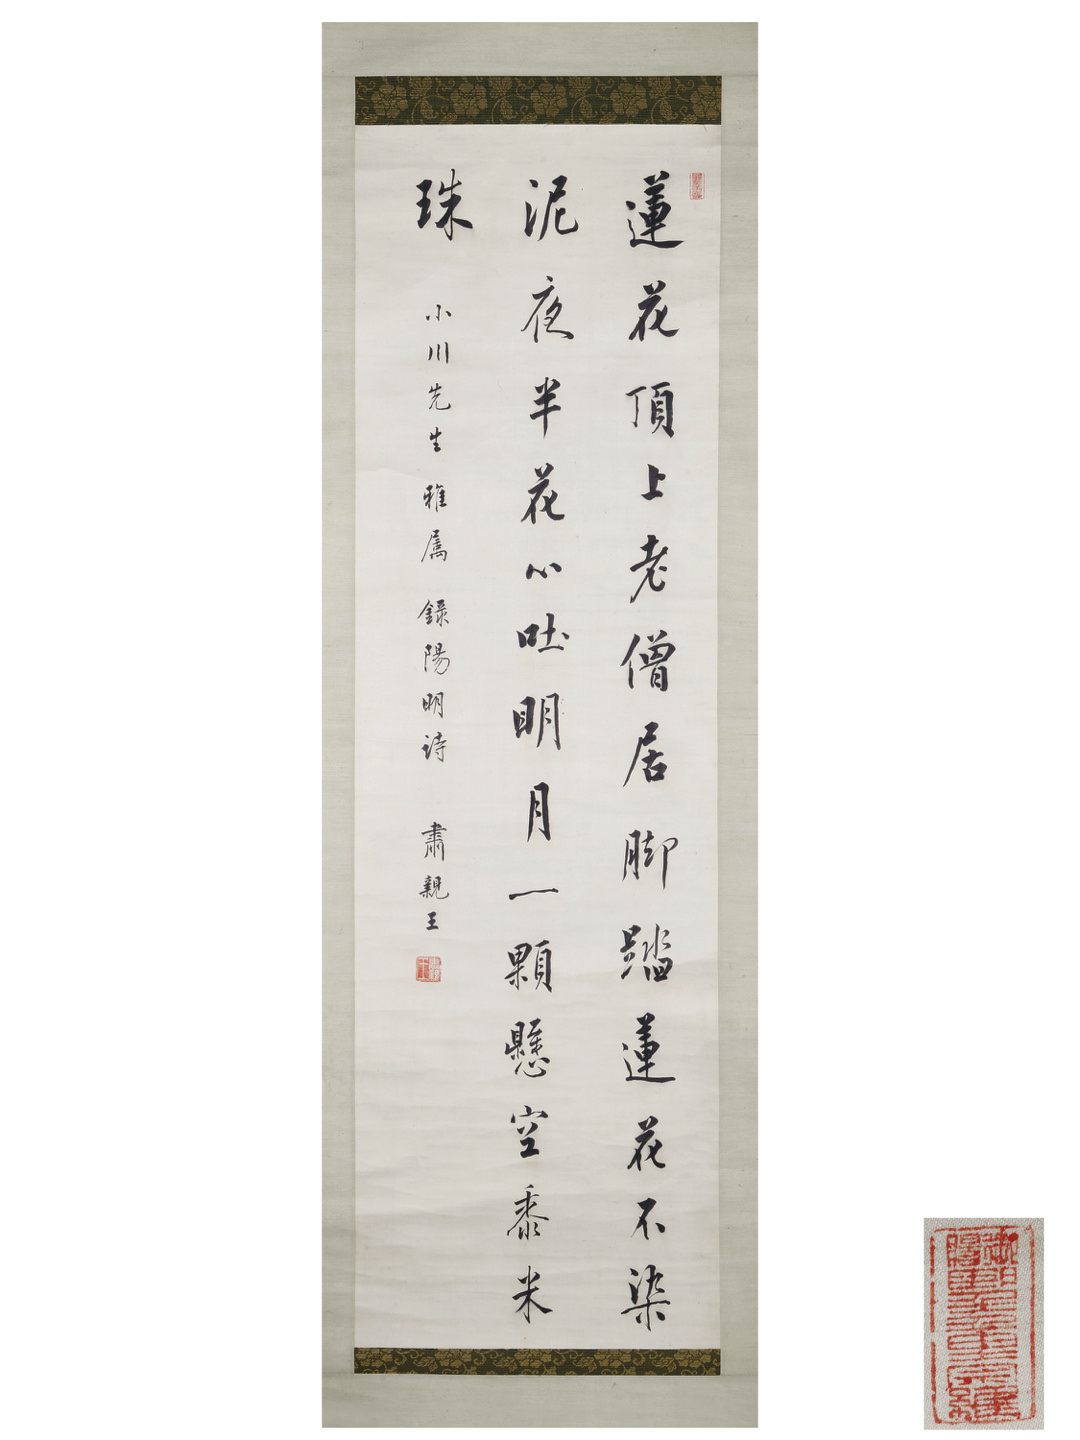 蓮花頂上老僧居脚踏蓮花不染
泥夜半花心吐明月一顆懸空黍米
珠
小川先生雅属録陽明诗 肅親王